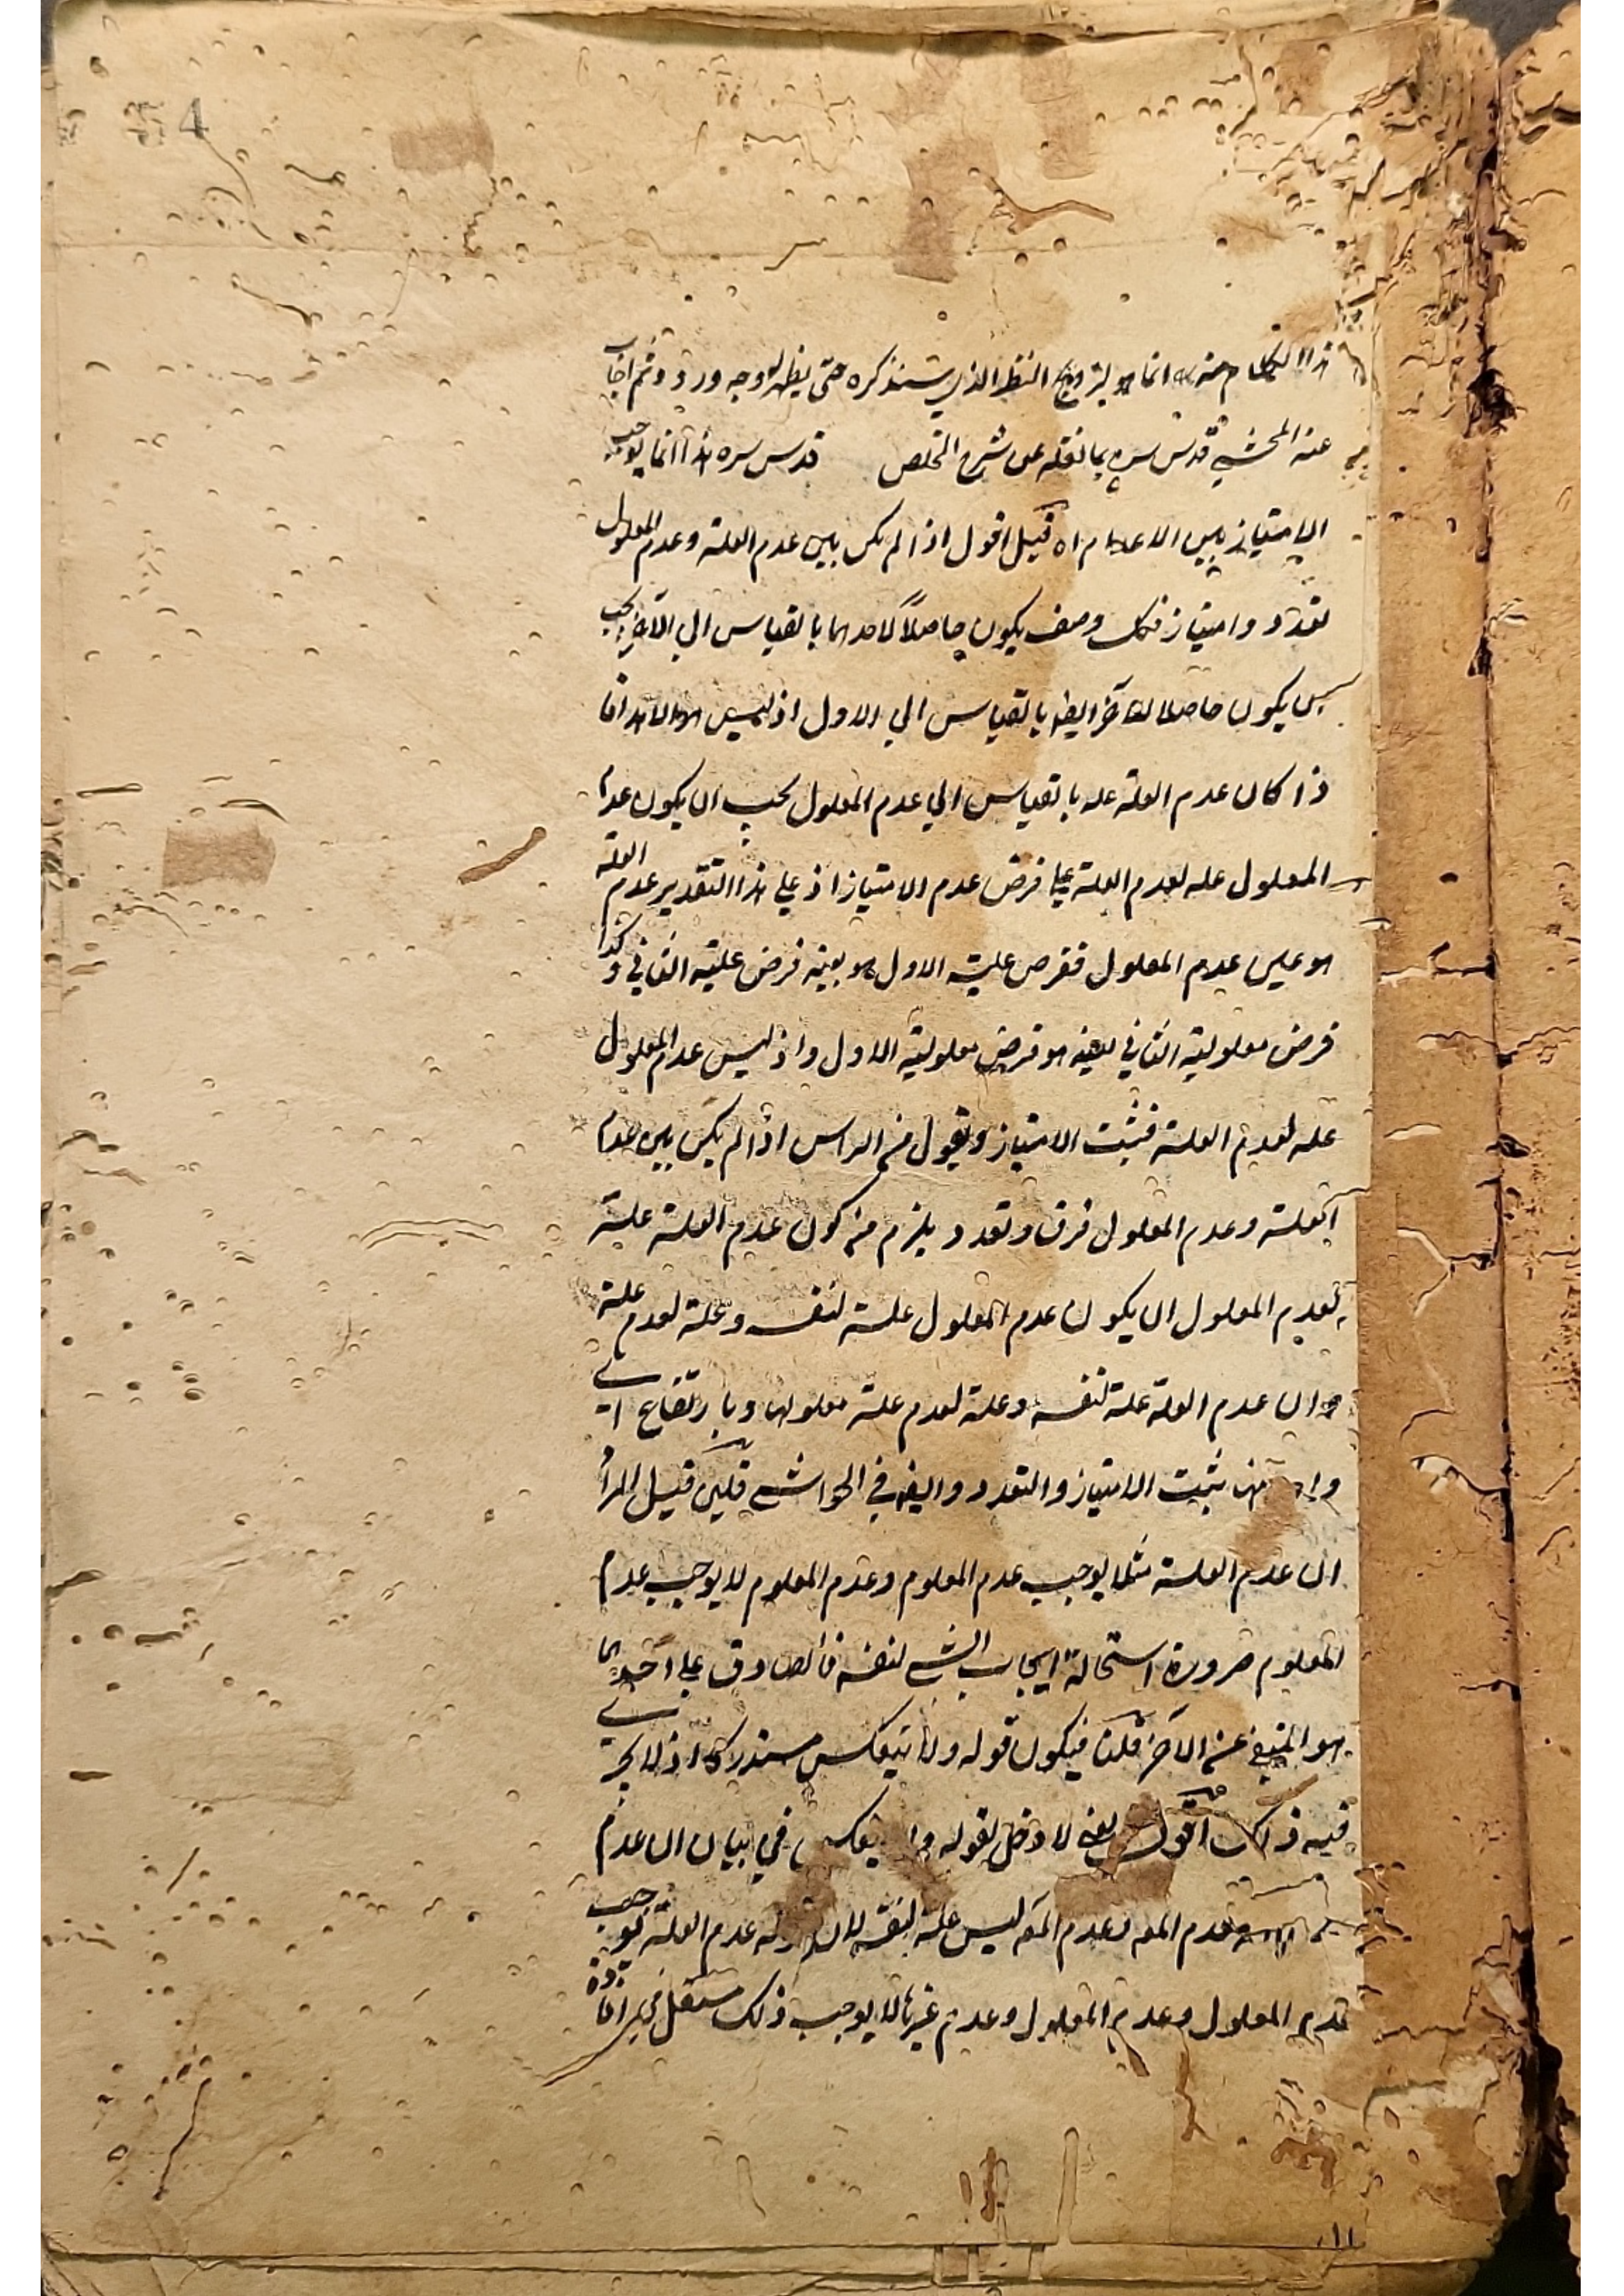 هذا الكلام منه انما هو لترويج النظر الذي سنذكره حتى يظهر وجه وروده ثم اجاب
عنه المحشي قدس سره بما نقله عن شرح الملخص قدس سره هذا انما يوجب
الامتياز بين الاعدام اه قيل اقول اذا لم يكن بين عدم العلة وعدم المعلول
تعدد وامتياز فكل وصف يكون حاصلاً لاحدهما بالقياس الى الآخر يجب
يكون حاصلا للآخر ايضا بالقياس الي الاول اذ ليس
ذا كان عدم العلة علة بالقياس الي عدم المعلول يجب ان يكون عدم
المعلول علة لعدم العلة علي فرض عدم الامتياز اذ علي هذا التقدير عدم العلة
هو عين عدم المعلول ففرض علية الاول هو بعينه فرض علية الثاني وكذا
فرض معلولية الثاني بعينه هو فرض معلولية الاول واذ ليس عدم المعلول
علة لعدم العلة فثبت الامتياز ونقول من الراس اذا لم يكن بين عدم
العلة وعدم المعلول فرق وتعدد يلزم من كون عدم العلة علة
لعدم المعلول ان يكون عدم المعلول علة لنفسه وعلة لعدم علة
وان عدم العلة علة لنفسه وعلة لعدم علة معلولها وبارتفاع
يثبت الامتياز والتعدد وايضا في الحواشي فلئن قيل المراد
ان عدم العلة مثلا يوجب عدم المعلوم وعدم المعلوم لا يوجب عدم
المعلوم ضرورة استحالة ايجاب الشي لنفسه فالصادق علي احدهما
هو المنفي عن الآخر قلنا فيكون قوله ولا ينعكس مستدركا اذ لا
فيه ذلك اقول يعني لا دخل لقوله ولا ينعكس في بيان ان عدم
لعدم المعه وعدم المعه ليس علة لنفسه لان قوله عدم العلة يوجب
عدم المعلول وعدم المعلول وعدم غيرها لا يوجب ذلك مستقل في افادة
١١
4